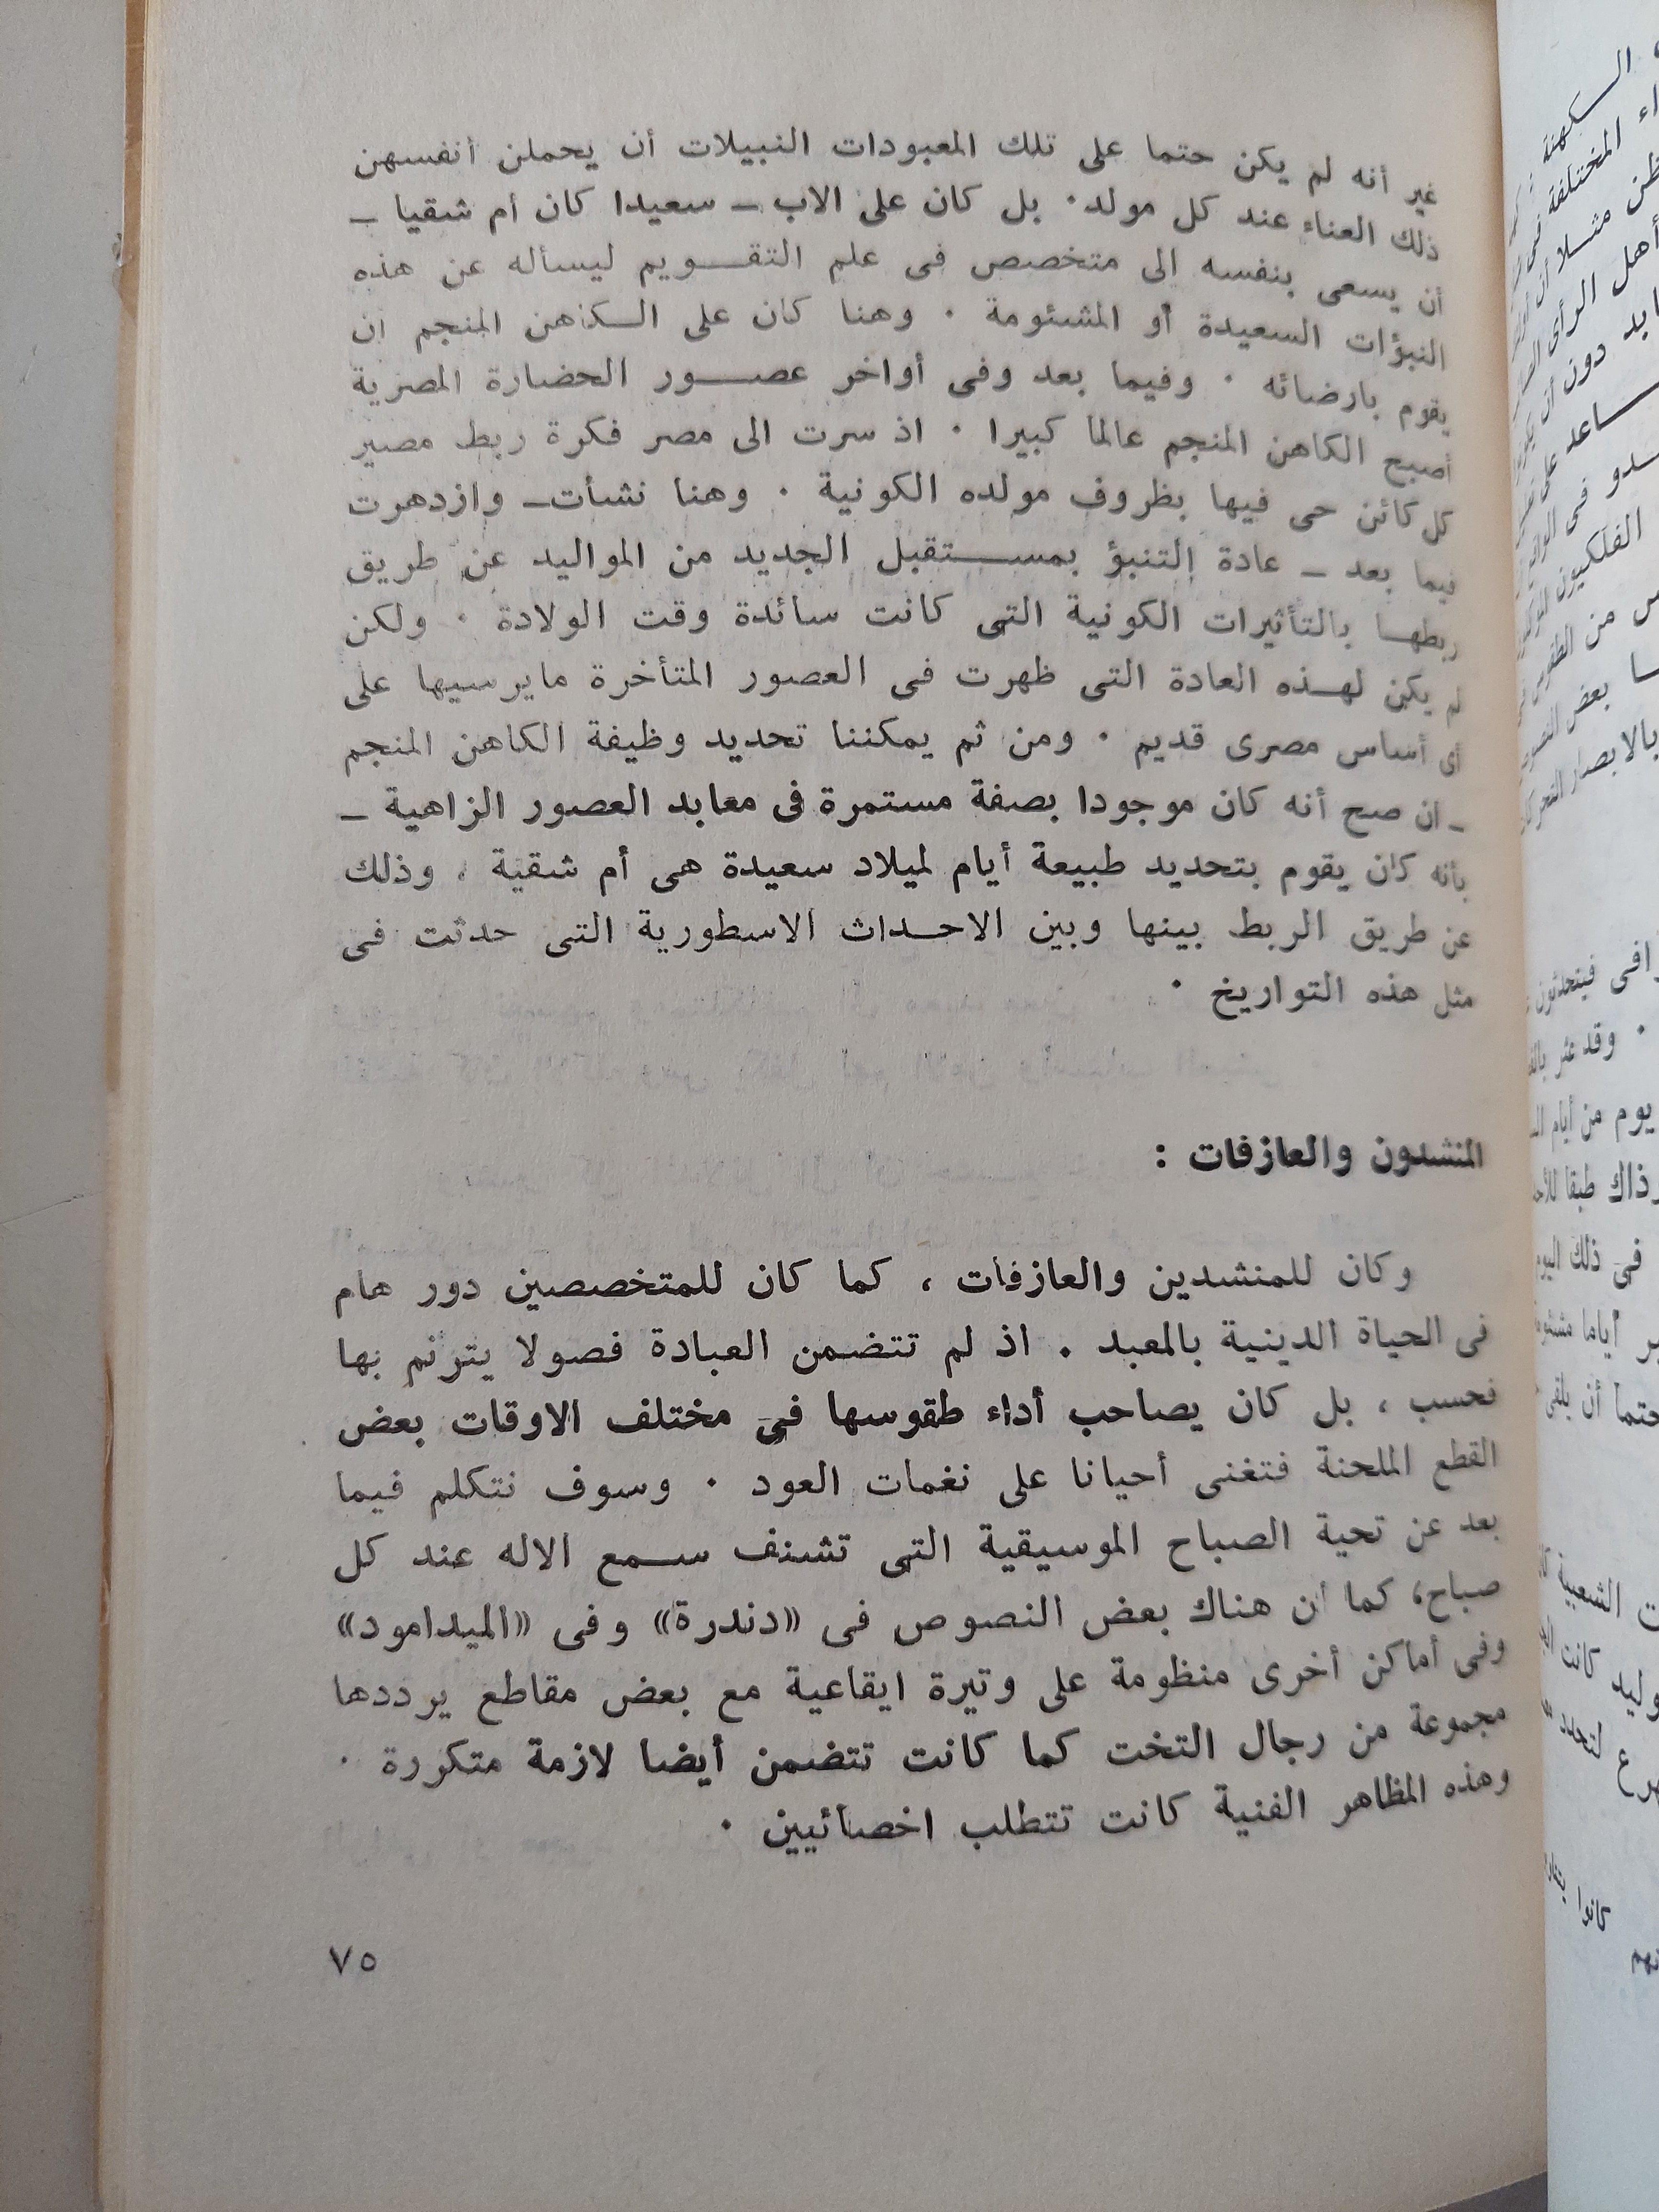 غير أنه لم يكن حتما على تلك المعبودات النبيلات أن يحملن أنفسهن
ذلك العناء عند كل مولد · بل كان على الاب ــ سعيدا كان أم شقيا ــ
أن يسعى بنفسه الى متخصص فى علم التقويم ليسأله عن هذه
النبؤات السعيدة أو المشئومة · وهنا كان على الكاهن المنجم ان
يقوم بارضائه · وفيما بعد وفى أواخر عصور الحضارة المصرية
أصبح الكاهن المنجم عالما كبيرا · اذ سرت الى مصر فكرة ربط مصير
كل كائن حى فيها بظروف مولده الكونية · وهنا نشأت ــ وازدهرت
فيما بعد ــ عادة التنبؤ بمستقبل الجديد من المواليد عن طريق
ربطها بالتأثيرات الكونية التى كانت سائدة وقت الولادة · ولكن
لم يكن لهذه العادة التى ظهرت فى العصور المتأخرة مايرسيها على
أى أساس مصرى قديم · ومن ثم يمكننا تحديد وظيفة الكاهن المنجم
ــ ان صح أنه كان موجودا بصفة مستمرة فى معابد العصور الزاهية ــ
بأنه كان يقوم بتحديد طبيعة أيام لميلاد سعيدة هى أم شقية ، وذلك
عن طريق الربط بينها وبين الاحداث الاسطورية التى حدثت فى
مثل هذه التواريخ ·
المنشدون والعازفات :
وكان للمنشدين والعازفات ، كما كان للمتخصصين دور هام
فى الحياة الدينية بالمعبد . اذ لم تتضمن العبادة فصولا يترنم بها
فحسب ، بل كان يصاحب أداء طقوسها فى مختلف الاوقات بعض
القطع الملحنة فتغنى أحيانا على نغمات العود · وسوف نتكلم فيما
بعد عن تحية الصباح الموسيقية التى تشنف سمع الاله عند كل
صباح، كما أن هناك بعض النصوص فى «دندرة» وفى «الميدامود»
وفى أماكن أخرى منظومة على وتيرة ايقاعية مع بعض مقاطع يرددها
مجموعة من رجال التخت كما كانت تتضمن أيضا لازمة متكررة ·
وهذه المظاهر الفنية كانت تتطلب اخصائيين ·
٧٥